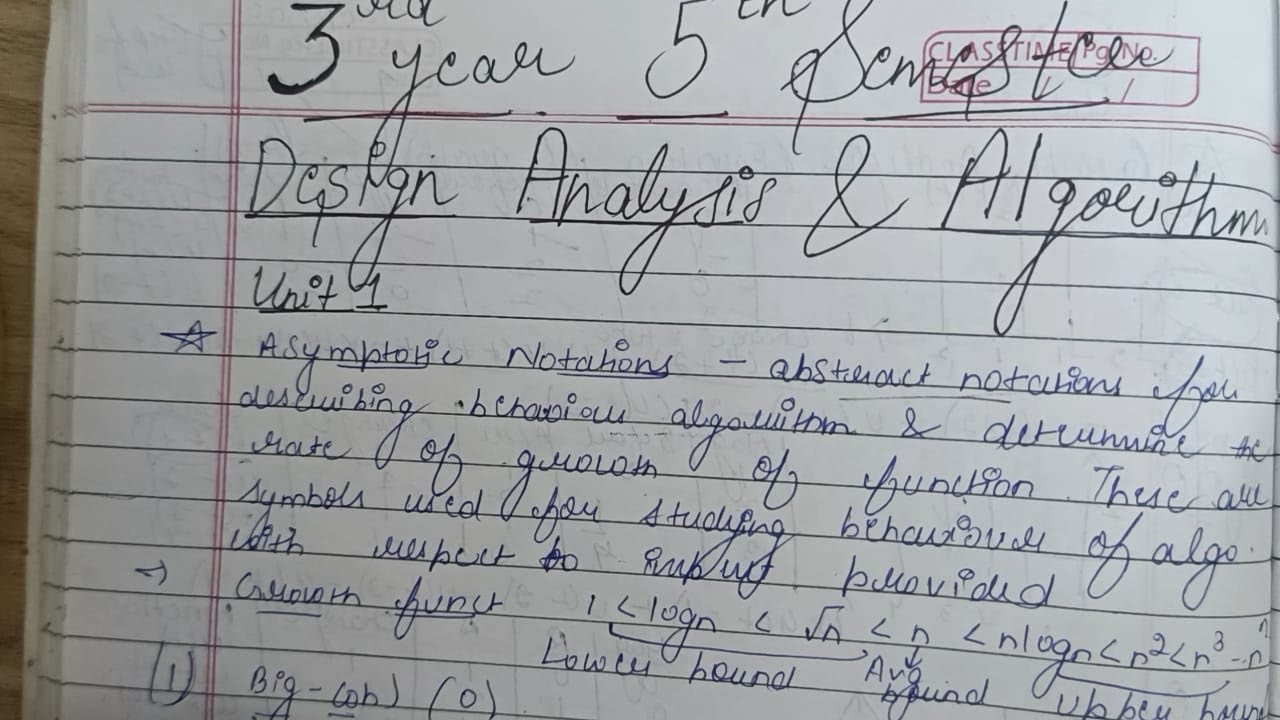 3rd year 5th Semester
CLASSTIME Pg. No.
Date / /
Design Analysis & Algorithm
Unit 1
☆ Asymptotic Notations - abstract notations for
describing behaviour algorithm & determine the
rate of growth of function. These are
symbols used for studying behaviour of algo.
with respect to input provided
→ Growth funct 1 < logn < √n < n < nlogn < n² < n³ -- nⁿ
Lower bound Avg bound Upper boun
(1) Big-(oh) (O)